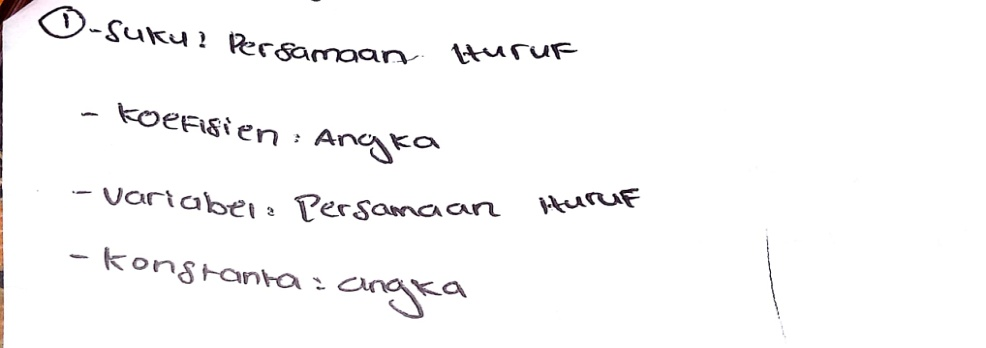 ① - Suku : Persamaan Huruf
- Koefisien : Angka
- Variabel : Persamaan Huruf
- Konstanta : angka